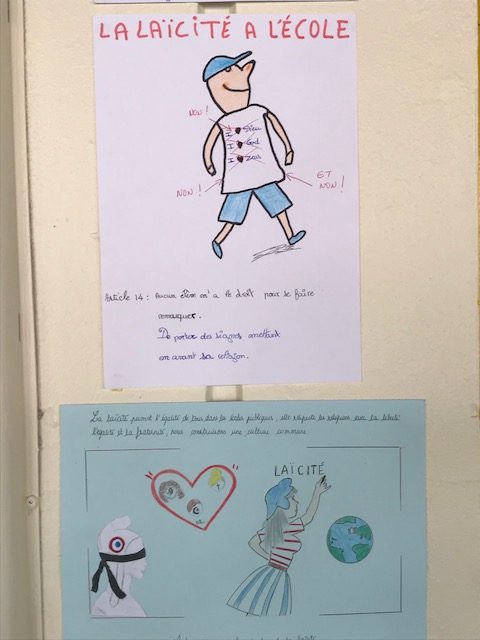 LA LAÏCITÉ A L'ÉCOLE
NON !
I Dieu
I God
I Zeus
NON !
ET NON !
Article 14 : Aucun élève n'a le droit pour se faire
remarquer.
De porter des signes mettant
en avant sa religion.
La laïcité permet l'égalité de tous dans les écoles publiques, elle respecte les religions avec la liberté
l'égalité et la fraternité, nous construisons une culture commune
LAÏCITÉ